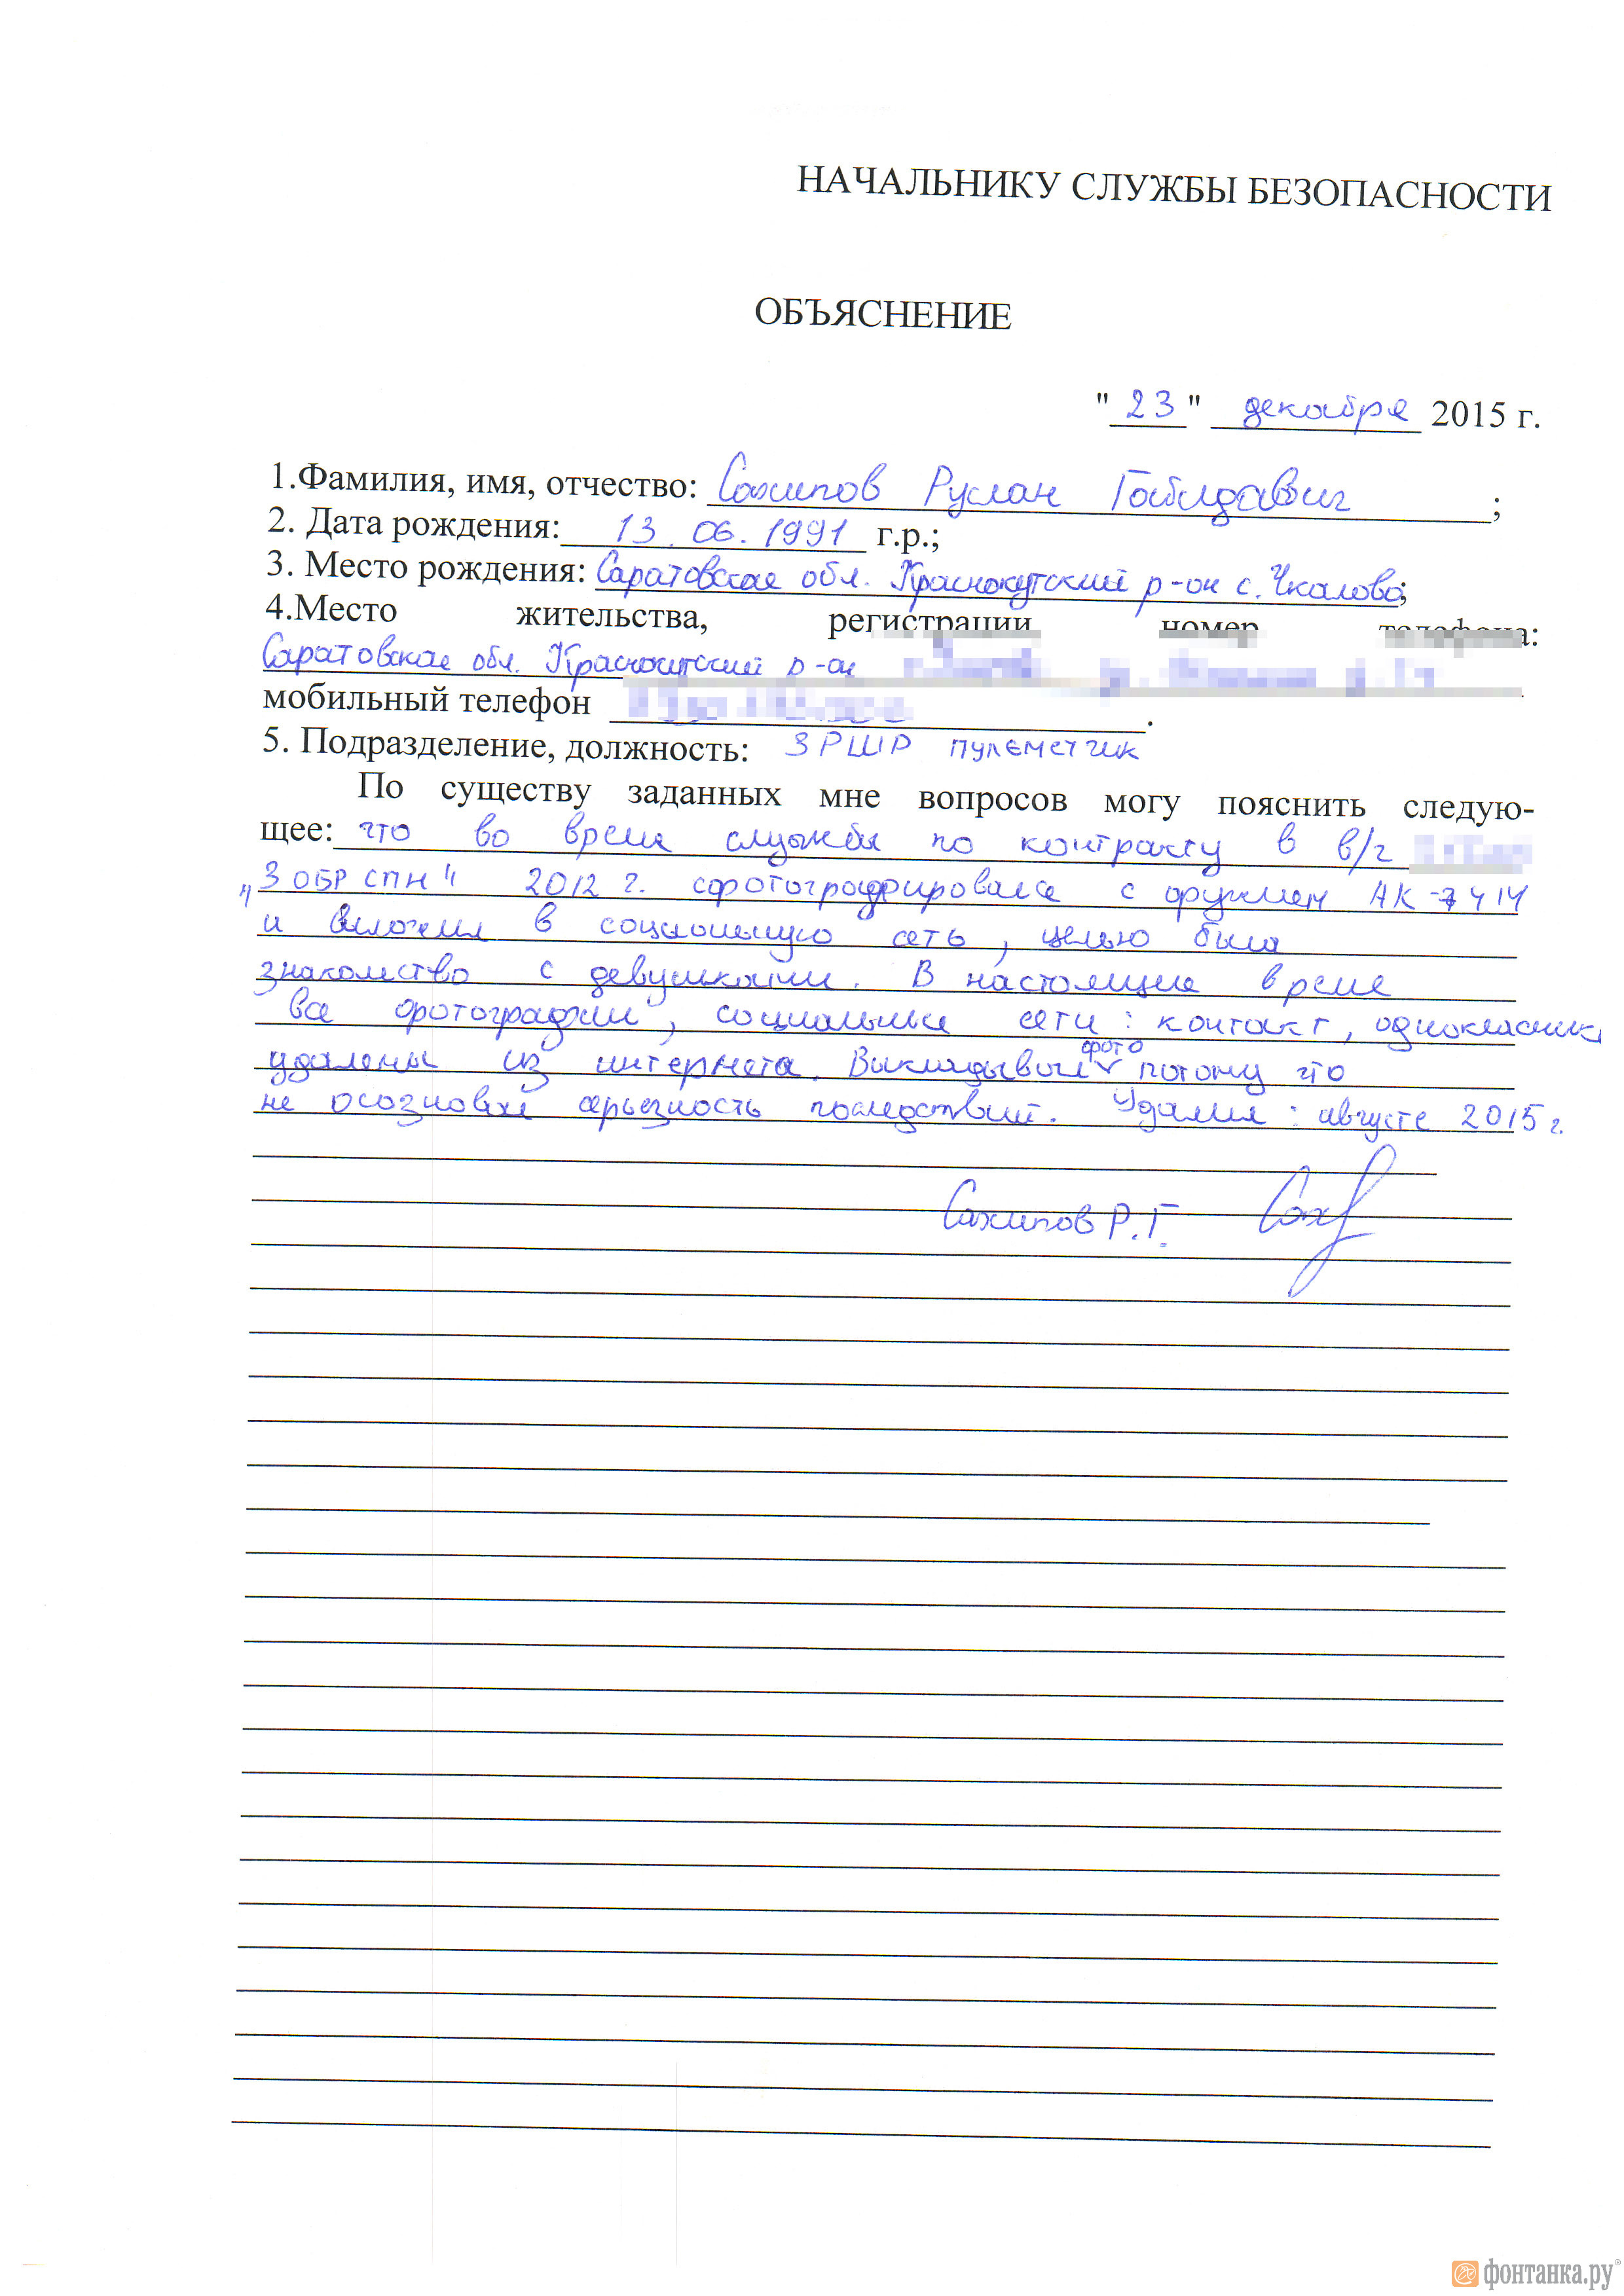 НАЧАЛЬНИКУ СЛУЖБЫ БЕЗОПАСНОСТИ
ОБЪЯСНЕНИЕ
"23" декабря 2015 г.
1.Фамилия, имя, отчество: Сахипов Руслан ;
2. Дата рождения: 13.06.1991 г.р.;
3. Место рождения: Саратовская обл. Краснокутский р-он с. Чкалово;
4.Место жительства, регистрации номер телефона:
Саратовская обл. Краснокутский р-он
мобильный телефон .
5. Подразделение, должность: 3РШР пулеметчик
По существу заданных мне вопросов могу пояснить следую-
щее: что во время службы по контракту в в/ч
"3 ОБР СПН" 2012 г. сфотографировался с оружием АК-74
и выложил в социальную сеть, целью была
знакомство с девушками. В настоящие время
все фотографии, социальные сети: контакт, однокласник
удалены из интернета. Выкладывал фото потому что
не осозновал серьезность последствий. Удалил: августе 2015 г.
Сахипов Р.Г. Сах
фонтанка.ру